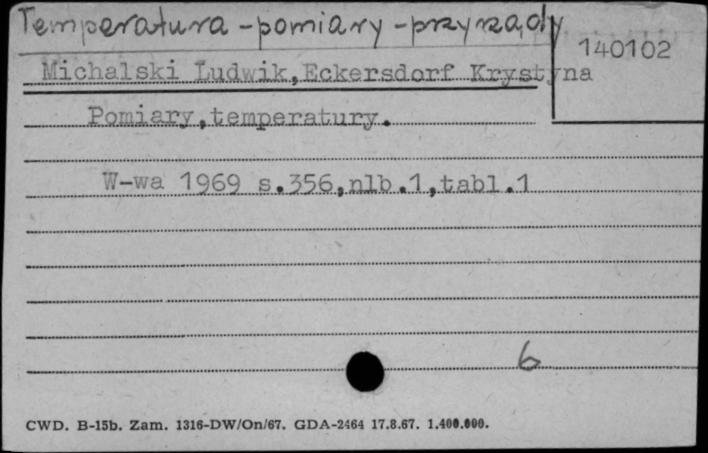 Temperatura - pomiary - przyrządy
140102
Michalski Ludwik,Eckersdorf Krystyna
Pomiary,temperatury.
W-wa 1969 s.356,nlb.1,tabl.1
6
CWD. B-15b. Zam. 1316-DW/On/67. GDA-2464 17.8.67. 1.400.000.